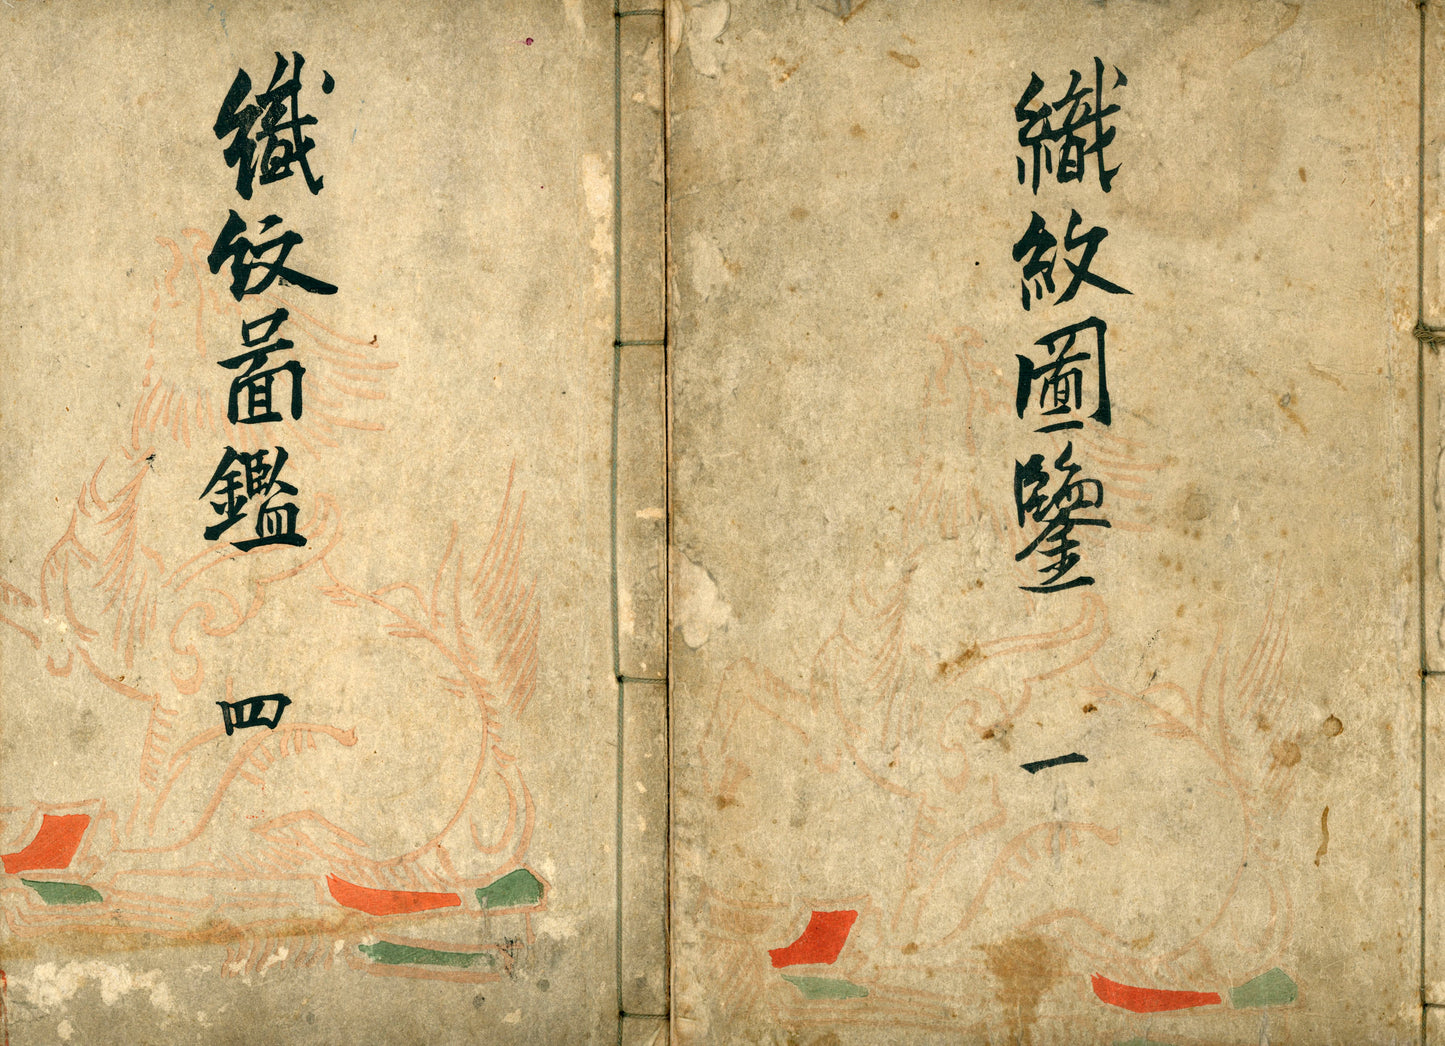 織紋圖鑒
一
織紋啚鑑
四